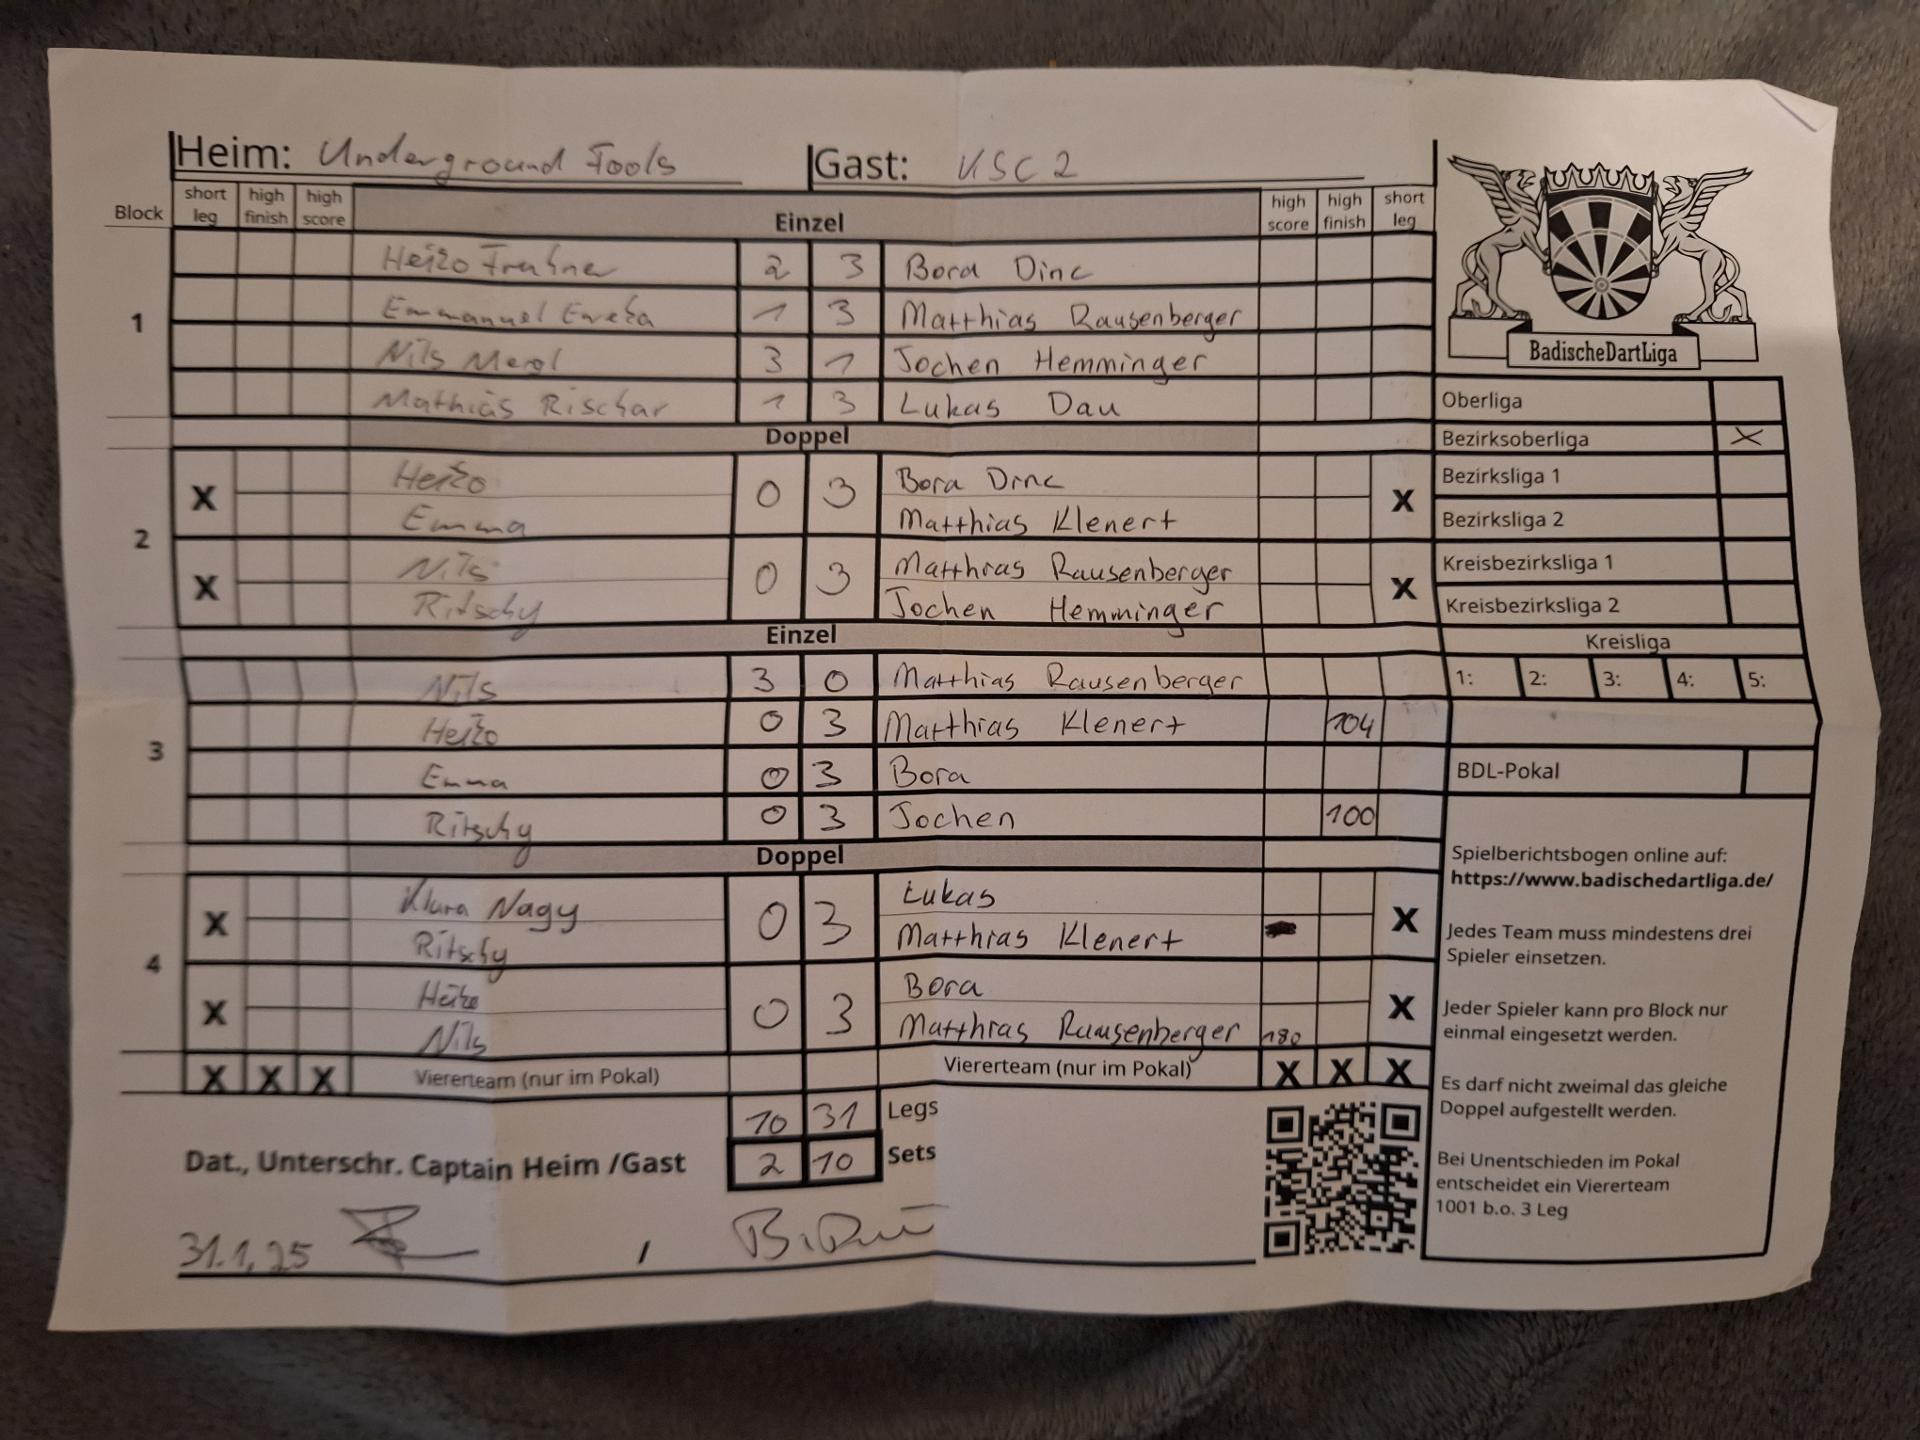 Heim: Underground Fools Gast: VSC 2
Block short leg high finish high score Einzel high score high finish short leg
1
Heiko 2 3 Bora Dinc
Emmanuel 1 3 Matthias Rausenberger
Nils Mergl 3 1 Jochen Hemminger
Mathias Rischar 1 3 Lukas Dau
Doppel
2
X Heiko 0 3 Bora Dinc X
Emma Matthias Klenert
X Nils 0 3 Matthias Rausenberger X
Ritschy Jochen Hemminger
Einzel
3
Nils 3 0 Matthias Rausenberger
Heiko 0 3 Matthias Klenert 104
Emma 0 3 Bora
Ritschy 0 3 Jochen 100
Doppel
4
X Klara Nagy 0 3 Lukas X
Ritschy Matthias Klenert
X Heiko 0 3 Bora X
Nils Matthias Rausenberger 180
X X X Viererteam (nur im Pokal) Viererteam (nur im Pokal) X X X
10 31 Legs
2 10 Sets
Dat., Unterschr. Captain Heim /Gast
31.1.25 /
BadischeDartLiga
Oberliga
Bezirksoberliga X
Bezirksliga 1
Bezirksliga 2
Kreisbezirksliga 1
Kreisbezirksliga 2
Kreisliga
1: 2: 3: 4: 5:
BDL-Pokal
Spielberichtsbogen online auf:
https://www.badischedartliga.de/
Jedes Team muss mindestens drei
Spieler einsetzen.
Jeder Spieler kann pro Block nur
einmal eingesetzt werden.
Es darf nicht zweimal das gleiche
Doppel aufgestellt werden.
Bei Unentschieden im Pokal
entscheidet ein Viererteam
1001 b.o. 3 Leg